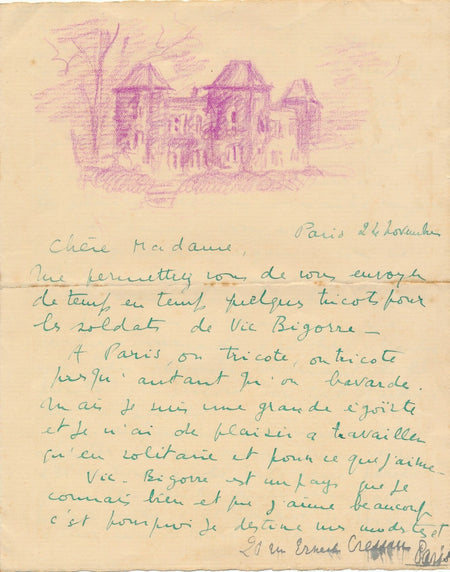 Paris 24 novembre
Chère Madame,
Me permettez vous de vous envoyer
de temps en temps quelques tricots pour
les soldats de Vic Bigorre –
A Paris, on tricote, on tricote
presqu'autant qu'on bavarde.
Mais je suis une grande égoïste
et je n'ai de plaisir à travailler
qu'en solitaire et pour ce que j'aime –
Vic-Bigorre est un pays que je
connais bien et que j'aime beaucoup
c'est pourquoi je destine mes modestes et
20 rue Ernest Cresson Paris